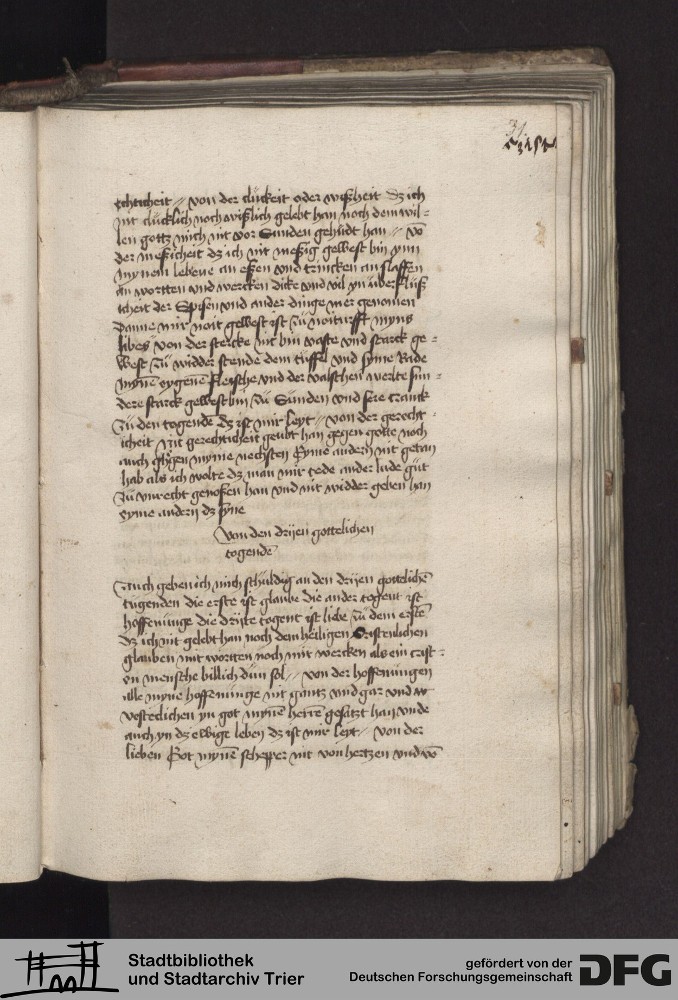 31.
echticheit // von der cluckeit oder wißheit dz ich
nit clucklich noch wißlich gelebt han noch dem wil=
len gottz mich nit vor Sunden gehudt han // vō
der meßicheit dz ich nit meßig gewest bin ynn
mynem lebene an eßen vnd trincken an slaffen
an wortten vnd wercken dicke vnd vil yn uberfluß
icheit der Spisen vnd ander dinge mer genomen
Danne mir noit gewest ist zu noitturfft myns
libes von der stercke nit bin vaste vnd starck ge=
west zu widder stende dem tuffel vnd syme Rade
mynē eygenē fleische vnd der valschen werlte sun=
dere starck gewest bin zu Sunden vnd sere cranck
zu den togendē dz ist mir leyt // von der gerecht=
icheit nit gerechticheit geubt han gegen gotte noch
auch gegen myme nechsten Eyme andern nit getan
hab als ich wolte dz man mir tede ander lude gut
zu vnrecht genoßen han vnd nit widder geben han
eyme andern dz syne
Von den drijen gottelichen
togendē
Auch geben ich mich schuldig an den drijen gottelichē
tugenden die erste ist glaube die ander togent ist
hoffenunge die drijte togent ist liebe zu dem erstē
dz ich nit gelebt han noch dem heiligen Cristenlichen
glauben mit wortten noch mit wercken als ein crist=
en mensche billich dun sol // von der hoffenungen
alle myne hoffenunge nit gantz vnd gar vnd
vesteclichen yn got mynē herrē gesatzt han vnde
auch yn dz ewige leben dz ist mir leyt // von der
lieben Got mynē schepper nit von hertzen vnd vō
Stadtbibliothek
und Stadtarchiv Trier
gefördert von der
Deutschen Forschungsgemeinschaft
DFG